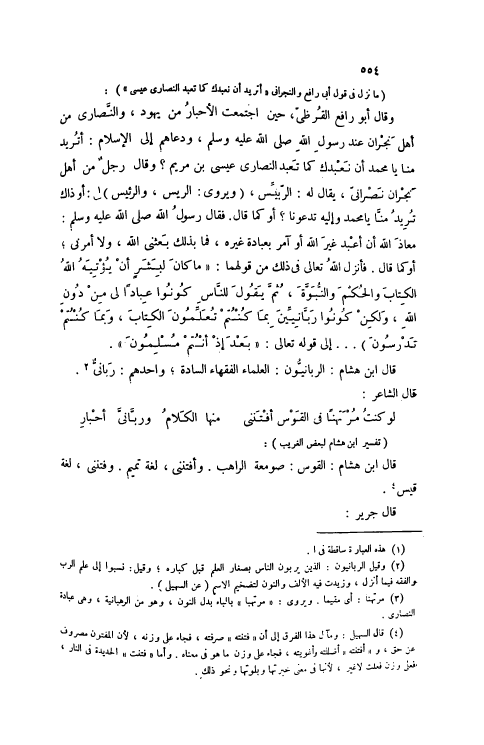 ٥٥٤
( ما نزل فى قول أبى رافع والنجرانى « أتريد أن نعبدك كما تعبد النصارى عيسى » ) :
وقال أبو رافع القُرَظىّ، حين اجتمعت الأحبارُ من يهود ، والنَّصارى من
أهل نَجْران عند رسول اللّه صلى اللّه عليه وسلم ، ودعاهم إلى الإسلام : أتُريد
منا يا محمد أن نَعْبدك كما تَعبد النصارى عيسى بن مريم ؟ وقال رجلٌ من أهل
نَجْران نَصْرانىّ ، يقال له : الرِّبِّيس ، ( ويروى : الريس ، والرئيس ) : أوَذاك
تُريدُ منَّا يامحمد وإليه تدعونا ؟ أو كما قال. فقال رسولُ اللّه صلى اللّه عليه وسلم :
معاذَ اللّه أن أعْبد غيرَ اللّه أو آمر بعبادة غيره ، فما بذلك بَعثنى اللّه ، ولا أمرنى ؛
أوكما قال . فأنزل اللّهُ تعالى فى ذلك من قولهما : « ما كانَ لِبَشَرٍ أنْ يُؤْتِيَهُ اللّهُ
الكِتابَ والحُكْمَ والنُّبُوَّةَ ، ثُمَّ يَقُولَ للنَّاسِ كُونُوا عِبادًا لى مِنْ دُونِ
اللّهِ ، وَلكِنْ كُونُوا رَبَّانِيِّينَ بِمَا كُنْتُمْ تُعَلِّمُونَ الكِتابَ ، وَبمَا كُنْتُمْ
تَدْرُسُونَ ) . . . إلى قوله تعالى : « بَعْدَ إذْ أنْتُمْ مُسْلِمُونَ » .
قال ابن هشام : الربانيُّون : العلماء الفقهاء السادة ؛ واحدهم : رَبانىٌّ ٢ .
قال الشاعر :
لو كنتُ مُرْتَهَنا فى القَوْس أفْتَنَنى منها الكَلامُ وربَّانىَّ أحْبارِ
( تفسير ابن هشام لبعض الغريب ) :
قال ابن هشام : القوس : صومعة الراهب . وأفتننى ، لغة تميم . وفتننى ، لغة
قيس٤ .
قال جرير :
(١) هذه العبارة ساقطة فى ا .
(٢) وقيل الربانيون : الذين يربون الناس بصغار العلم قبل كباره ؛ وقيل : نسبوا إلى علم الرب
والفقه فيما أنزل ، وزيدت فيه الألف والنون لتفخيم الاسم ( عن السهيلى ) .
(٣) مرتهنا : أى مقيما . ويروى : « مرتهبا » بالباء بدل النون ، وهو من الرهبانية ، وهى عبادة
النصارى .
(٤) قال السهيلى : ومآل هذا الفرق إلى أن « فتنته » صرفته ، فجاء على وزنه ، لأن المفتون مصروف
عن حق ، و « أفتنته » أضللته وأغويته ، فجاء على وزن ما هو فى معناه . وأما « فتنت » الحديدة فى النار ،
فعلى وزن فعلت لا غير ، لأنها فى معنى خبرتها وبلوتها ونحو ذلك .